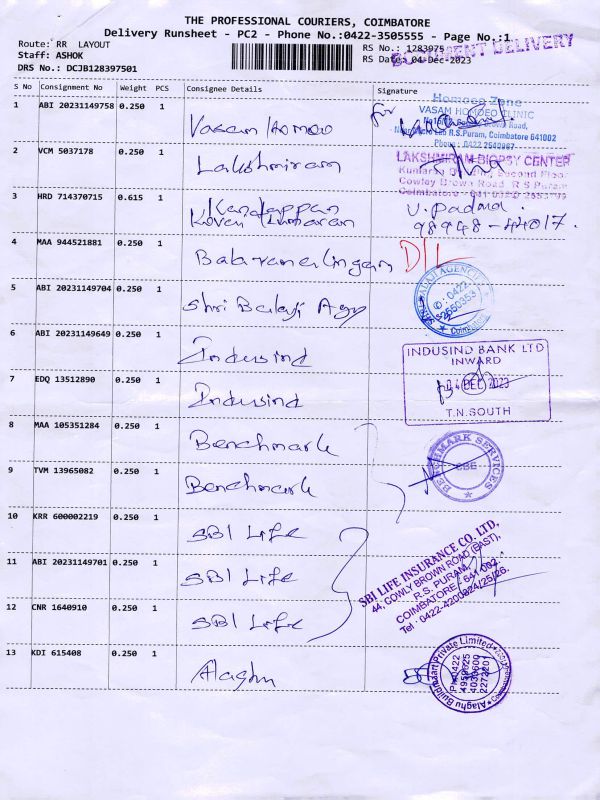 THE PROFESSIONAL COURIERS, COIMBATORE
Delivery Runsheet - PC2 - Phone No.:0422-3505555 - Page No.:1
Route: RR LAYOUT
Staff: ASHOK
DRS No.: DCJB128397501
RS No.: 1283975
RS Date: 04-Dec-2023
DOCUMENT DELIVERY
S No Consignment No Weight PCS Consignee Details Signature
1 ABI 20231149758 0.250 1 Vasam Homoeo for
Homoeo Zone
VASAN HOMOEO CLINIC
Road,
Lab R.S.Puram, Coimbatore 641002
Phone : 0422 2540967
2 VCM 5037178 0.250 1 Lakshmiram
LAKSHMIRAM BIOPSY CENTER
Second Floor
Cowley Brown Road R S Puram
Coimbatore - 641
3 HRD 714370715 0.615 1 Kandappan
Kovai Kumaran
V. Padma.
98948-44017.
4 MAA 944521881 0.250 1 Balaramalingam D/L
5 ABI 20231149704 0.250 1 Shri Balaji Agy
SHRI BALAJI AGENCIES
✆: 0422-
2550353
Coimbatore
6 ABI 20231149649 0.250 1 Indusind
INDUSIND BANK LTD
INWARD
04 DEC 2023
T.N.SOUTH
7 EDQ 13512890 0.250 1 Indusind
8 MAA 105351284 0.250 1 Benchmark
BENCHMARK SERVICES
CBE
9 TVM 13965082 0.250 1 Benchmark
10 KRR 600002219 0.250 1 SBI Life
SBI LIFE INSURANCE CO. LTD,
44, COWLY BROWN ROAD (EAST),
R.S. PURAM,
COIMBATORE - 641 002.
Tel : 0422-4200824/25/26.
11 ABI 20231149701 0.250 1 SBI Life
12 CNR 1640910 0.250 1 SBI Life
13 KDI 615408 0.250 1 Alaghu
Alaghu Buildmaart Private Limited
PH:0422
4950025
4030600
2272201